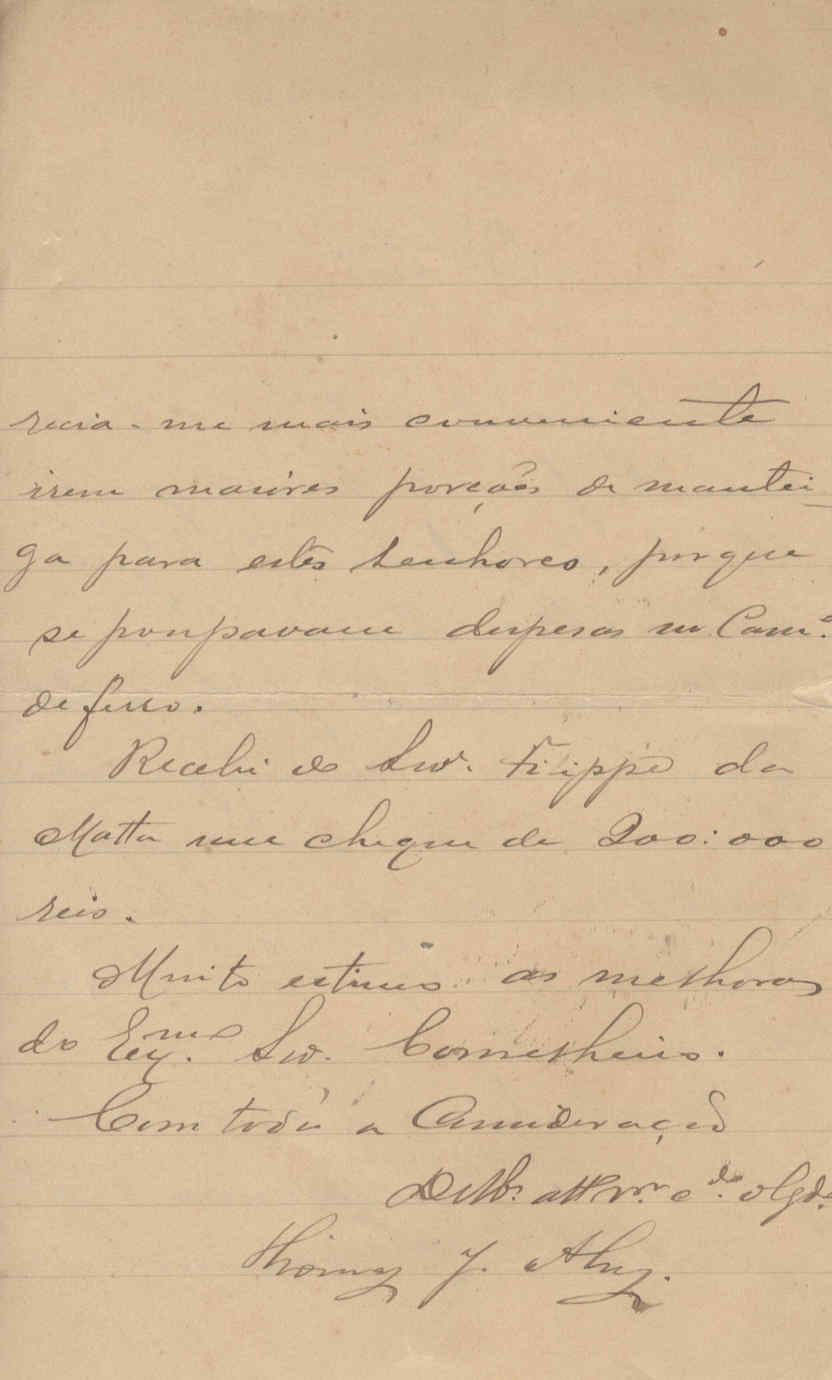 recia-me mais conveniente
irem maiores porções de mantei
ga para estes senhores, porque
se poupavam despesas no Camº
de ferro.
Recebi do Snr. Filippe da
Matta um cheque de 200:000
reis.
Muito estimo as melhoras
do Exmo. Snr. Conselheiro.
Com toda a Consideração
De V. attº vnr. e obgdo.
Thomaz J. Alvz.